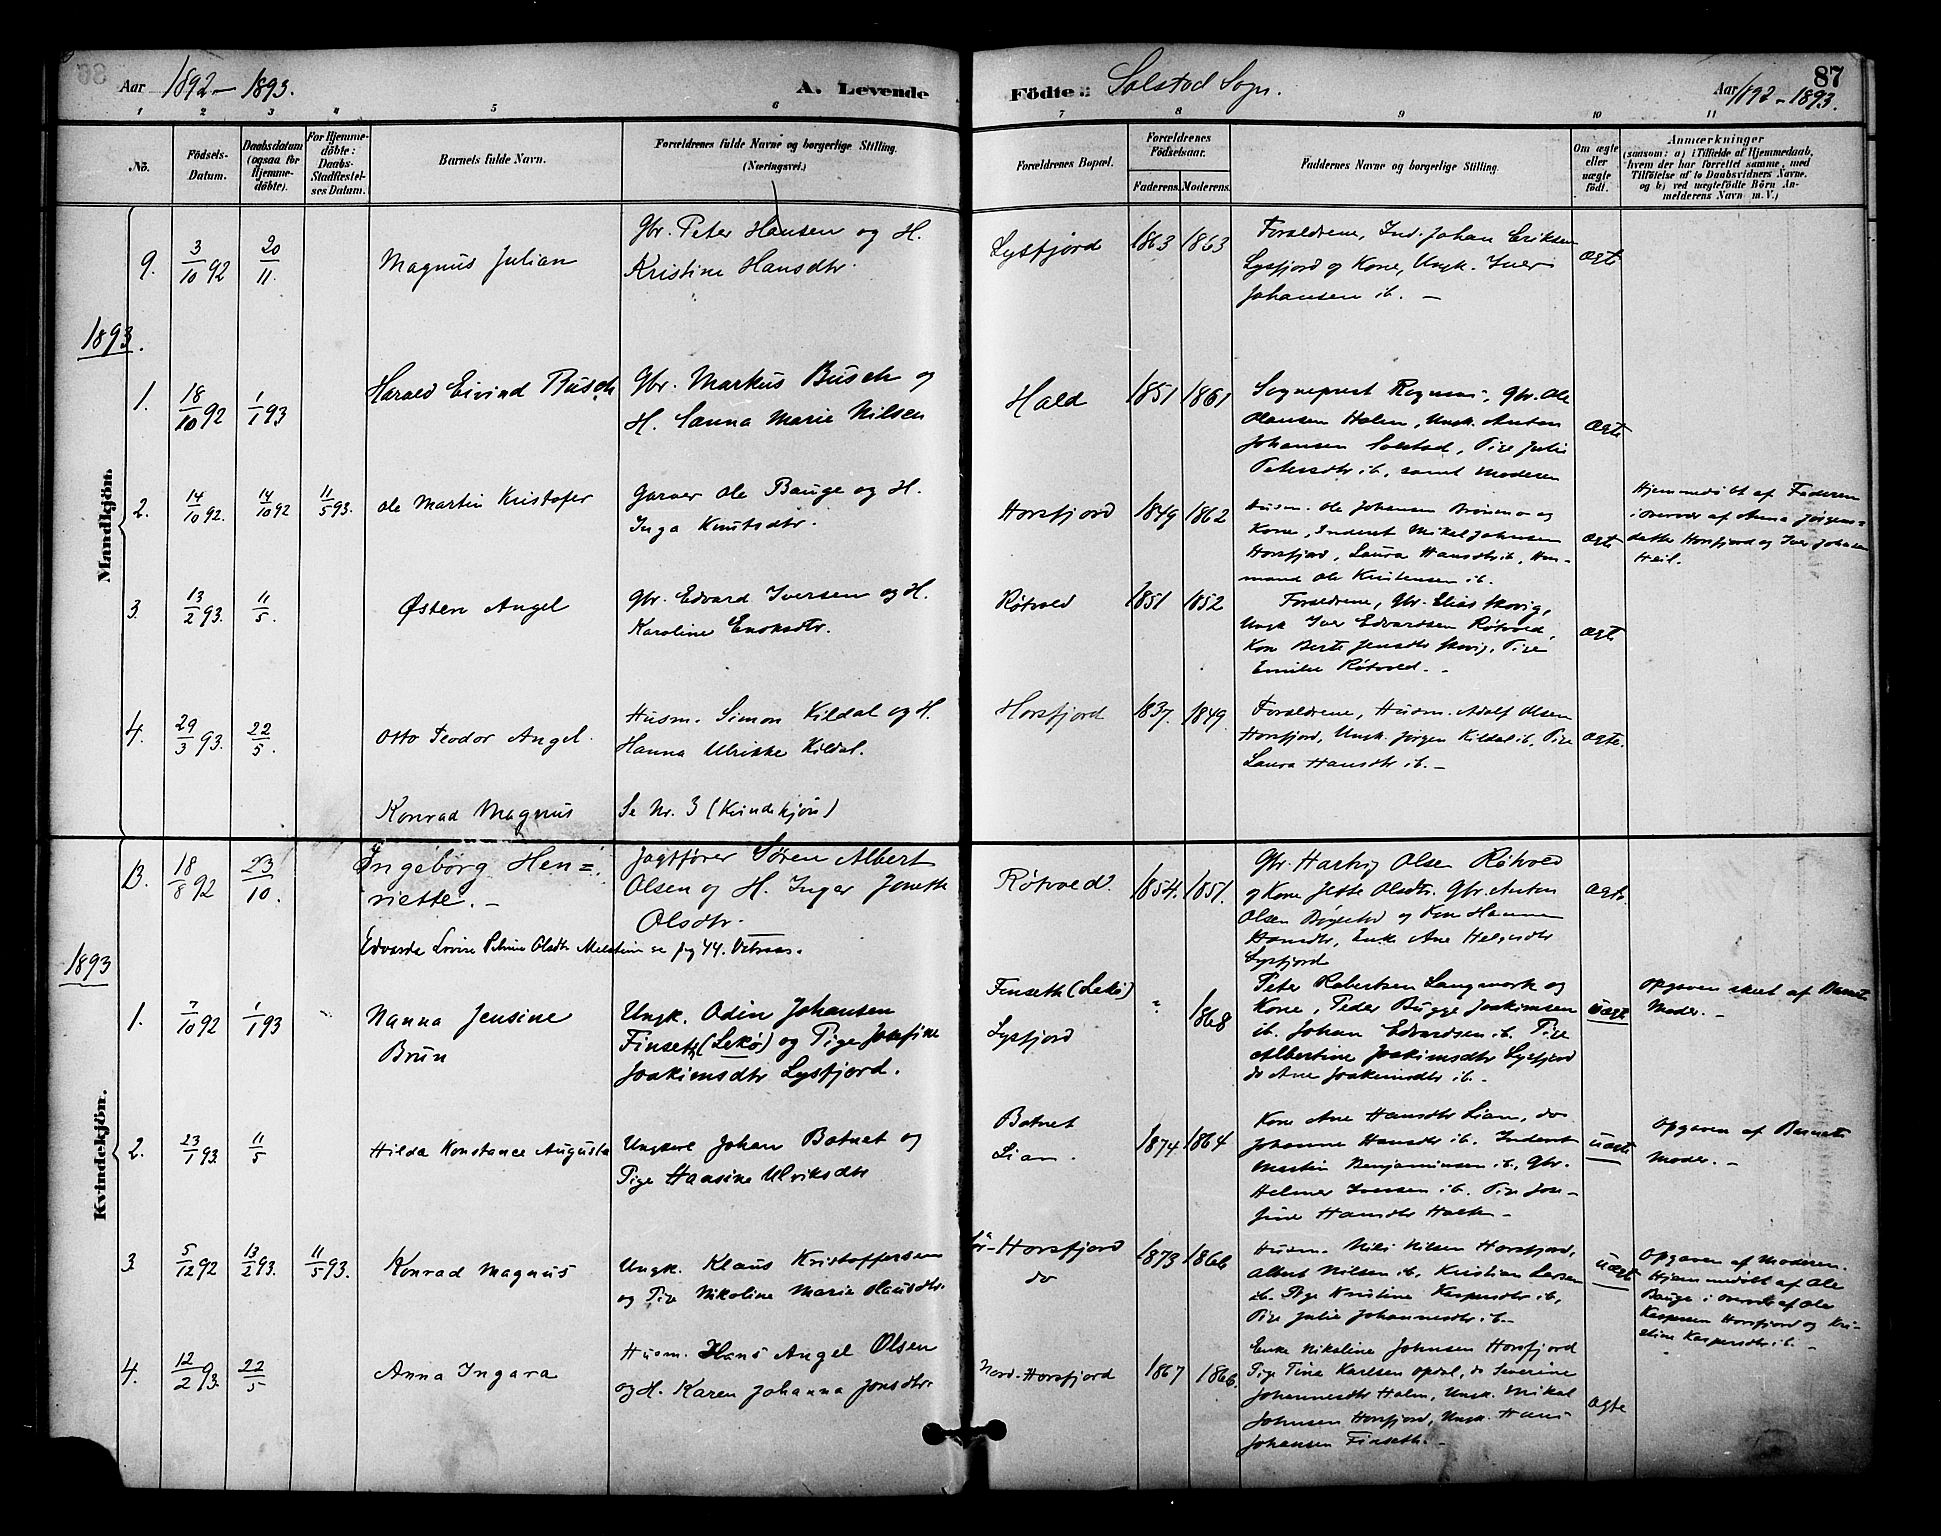 Aar 1892 - 1893.
A. Levende
Födte i: Solstad Sogn.
87
Aar 1892 - 1893.
1 2 3 4 5 6 7 8 9 10 11
No.
Födsels-
Datum.
Daabsdatum
(ogsaa for
Hjemme-
döbte).
For Hjemme-
döbte:
Daabs-
Stadfæstel-
ses Datum.
Barnets fulde Navn.
Forældrenes fulde Navne og borgerlige Stilling.
(Næringsvei.)
Forældrenes Bopæl.
Forældrenes
Födselsaar.
Faderens. Moderens.
Faddernes Navne og borgerlige Stilling.
Om ægte
eller
uægte
födt.
Anmærkninger
(saasom: a) i Tilfælde af Hjemmedaab,
hvem der har forrettet samme, med
Tilföielse af to Daabsvidners Navne,
og b) ved uægtefödte Börn An-
melderens Navn m. V.)
Mandkjön.
9. 3/10 92 20/11. Magnus Julian
Gbr. Peter Hansen og H.
Kristine Hansdtr.
Lysfjord 1863 1863
Forældrene, Ind. Johan Eriksen
Lysfjord og Kone, Ungk. Iver
Johansen ib. -
ægte
1893.
1. 18/10 92 1/1 93 Harald Eivind Busch
Gbr. Markus Busch og
H. Sanna Marie Nilsen
Hald 1851 1861
Sogneprest Rognaas, Gbr. Ole
Olausen Holm, Ungk. Anton
Johansen Solstad, Pige Julie
Petersdtr ib, samt Moderen
ægte
2. 14/10 92. 14/10 92 11/5 93. Ole Martin Kristofer
Garver Ole Bauge og H.
Inga Knutsdtr.
Horsfjord 1849 1862
Husm. Ole Johansen Brönmo og
Kone, Inderst Mikal Johnsen
Horsfjord, Laura Hansdtr ib, Hus-
mand Ole Kristensen ib.
ægte
Hjemmedöbt af Faderen
i Overvær af Anna Jörgens-
datter Horsfjord og Iver Johnsen
Heil.
3. 13/2 93. 11/5. Østen Angel
Gbr. Edvard Iversen og H.
Karoline Enoksdtr.
Røtvold 1851 1852
Forældrene, Gbr. Elias Skovig,
Ungk Iver Edvardsen Røtvold,
Kone Berte Jensdtr Skovig, Pige
Emilie Røtvold. -
ægte
4. 29/3 93. 22/5. Otto Teodor Angel.
Husm. Simon Kildal og H.
Hanna Ulrikke Kildal.
Horsfjord 1837. 1849
Forældrene, Husm. Adolf Olsen
Horsfjord, Ungk. Jörgen Kildal ib, Pige
Laura Hansdtr ib. -
ægte.
Konrad Magnus
Se Nr. 3 (Kvindekjøn)
Kvindekjön.
13. 18/8 92 23/10. Ingeborg Hen=
riette. -
Jagtfører Søren Albert
Olsen og H. Inger Jonette
Olsdtr.
Røtvold. 1854. 1851.
Gbr. Hartvig Olsen Røtvold
og Kone Jette Olsdtr. Gbr. Anton
Olsen Bøgestad og Kone Hanna
Hansdtr, Enke Ane Helgesdtr
Lysfjord
ægte.
Edvarda Lovise Petrine Olsdtr Melstein se pag 44. Vitnaas.
1893
1. 7/10 92 1/1 93 Nanna Jensine
Brun
Ungk. Odin Johansen
Finseth (Lekö) og Pige Josefine
Joakimsdtr Lysfjord.
Finseth (Lekö)
Lysfjord
" 1868
Peter Robertsen Langmork og
Kone, Peder Bugge Joakimsen
ib. Johan Edvardsen ib. Pige
Albertine Joakimsdtr Lysfjord
do Ane Joakimsdtr ib. -
uægte
Opgaven skeet af Barnets
Moder. -
2. 23/1 93. 11/5 Hilda Konstance Augusta
Ungkarl Johan Botnet og
Pige Hansine Ulriksdtr
Botnet
Lian.
1874 1864
Kone Ane Hansdtr Lian, do
Johanne Hansdtr ib. Inderst
Martin Benjaminsen ib, Gbr.
Helmer Iversen ib. Pige Jose-
fine Hansdtr Holten -
uægte
Opgaven af Barnets
Moder. -
3. 5/12 92 13/2 93. 11/5 93. Konrad Magnus
Ungk. Klaus Kristoffersen
og Pige Nikoline Marie Hansdtr.
Sör-Horsfjord
do
1873 1866
Husm. Nils Nilsen Horsfjord,
Albert Nilsen ib, Kristian Larsen
ib. Pige Kristine Kaspersdtr ib,
Pige Julie Johannesdtr ib. -
uægte
Opgaven af Moderen.
Hjemmedöbt af Ole
Bauge i Overvær af Ole
Kaspersen Horsfjord og Kri-
stine Kaspersdtr ib. -
4. 12/2 93. 22/5 Anna Ingara
Husm. Hans Angel Olsen
og H. Karen Johanna Jonsdtr.
Nord-Horsfjord 1867 1866.
Enke Nikoline Johnsen Horsfjord
Pige Tina Karlsen Opdal, do Severine
Johannesdtr Holm, Ungk. Mikal
Johnsen Horsfjord, Ungk. Hans
Johansen Finseth. -
ægte